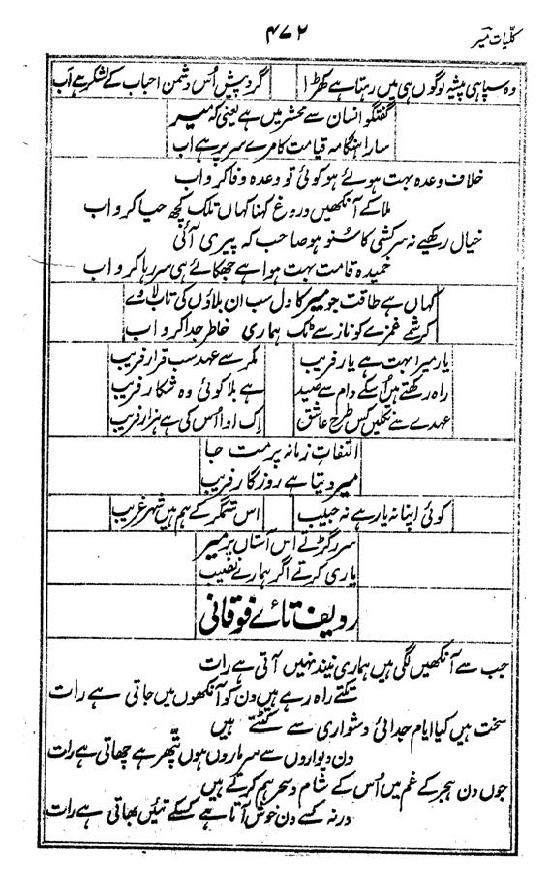 کلیات میر
۴۷۲
وہ سپاہی پیشہ لوگوں ہی میں رہتا ہے کھڑا گرد پیش اُس دشمن احباب کے لشکر ہے اب
گفتگو انسان سے محشر میں ہے یعنی کہ میر
سارا ہنگامہ قیامت کا مرے سر پر ہے اب
خلاف وعدہ بہت ہوئے ہو کوئی تو وعدہ وفا کرو اب
ملا کے آنکھیں دروغ کہنا کہاں تلک کچھ حیا کرو اب
خیال رکھیے نہ سرکشی کا سنو ہو صاحب کہ پیری آئی
خمیدہ قامت بہت ہوا ہے جھکائے ہی سر رہا کرو اب
کہاں ہے طاقت جو میر کا دل سب ان بلاؤں کی تاب لاوے
کرشمے غمزے کو ناز سے ٹک ہماری خاطر جدا کرو اب
یار میرا بہت ہے یار فریب مکر سے عہد سب قرار فریب
راہ رکھتے ہیں اُسکے دام سے صید ہے بلا کوئی وہ شکار فریب
عہدے سے نکلیں کس طرح عاشق اک ادا اُس کی ہے ہزار فریب
التفات زمانہ پر مت جا
میر دیتا ہے روزگار فریب
کوئی اپنا نہ یار ہے نہ حبیب اس ستمگر کے ہم ہیں شہر غریب
سر رگڑتے اس آستاں پر میر
یاری کرتے اگر ہمارے نصیب
ردیف تائے فوقانی
جب سے آنکھیں لگی ہیں ہماری نیند نہیں آتی ہے رات
تکتے راہ رہے ہیں دن کو آنکھوں میں جاتی ہے رات
سخت ہیں کیا ایام جدائی دشواری سے کٹتے ہیں
دن دیواروں سے سر ماروں ہوں پتّھر ہے چھاتی ہے رات
جوں دن ہجر کے غم میں اُس کے شام و سحر ہم کرتے ہیں
ورنہ کسے دن خوش آتا ہے کسکے تئیں بھاتی ہے رات